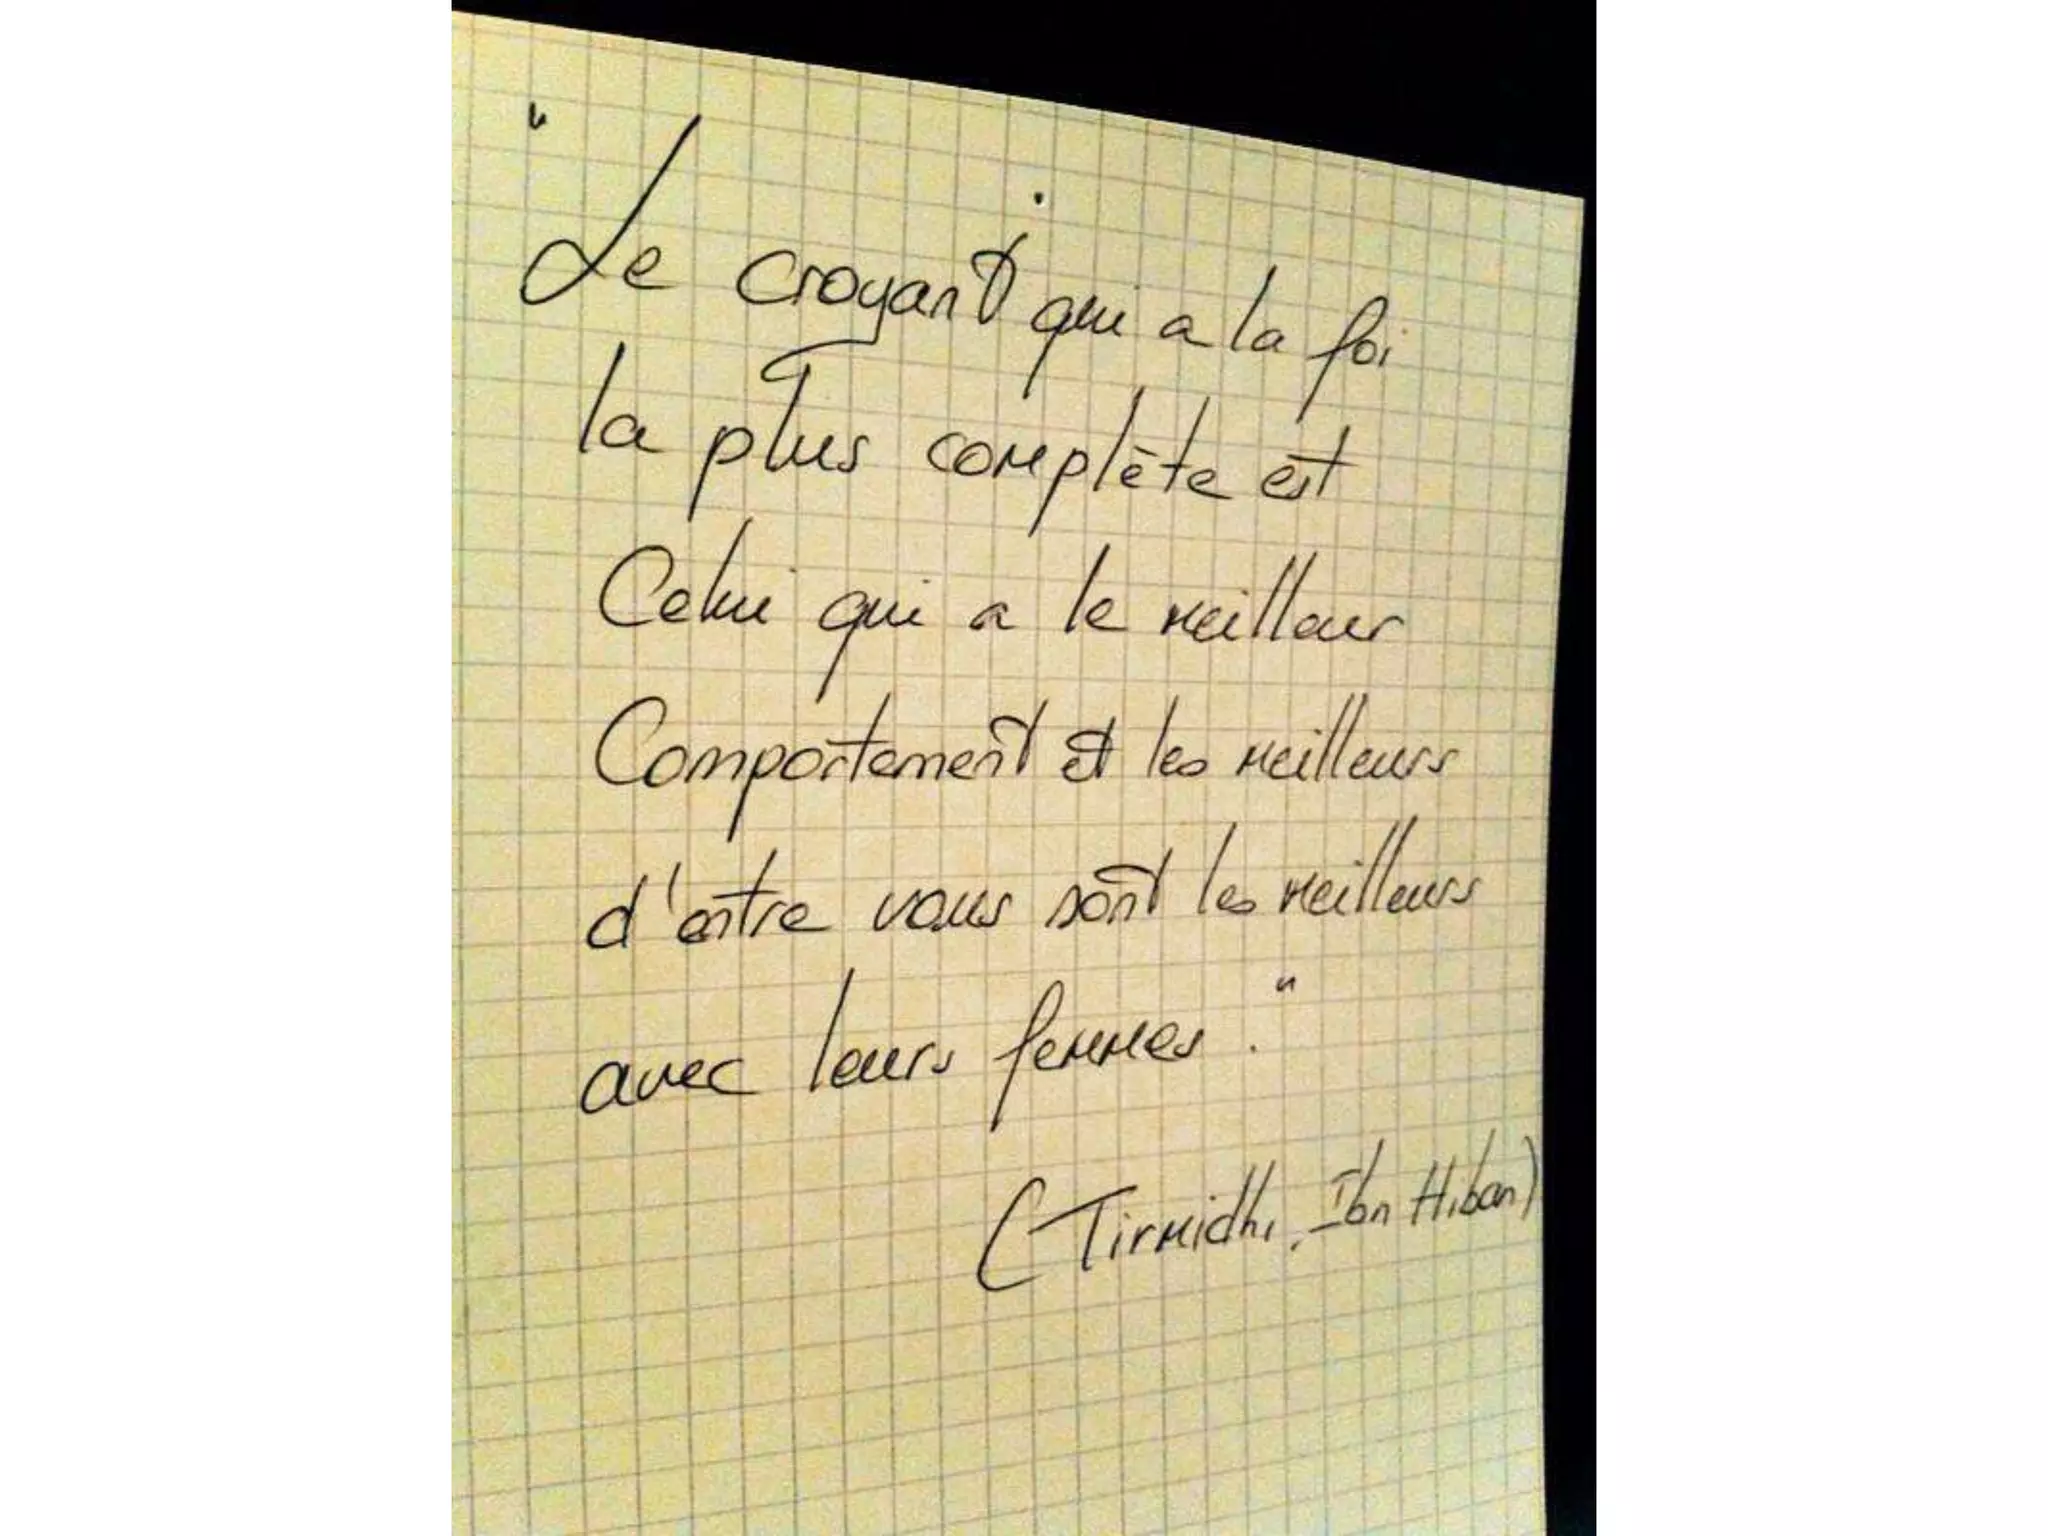 "Le croyant qui a la foi
la plus complète est
Celui qui a le meilleur
Comportement et les meilleurs
d'entre vous sont les meilleurs
avec leurs femmes."
(Tirmidhi, Ibn Hiban)